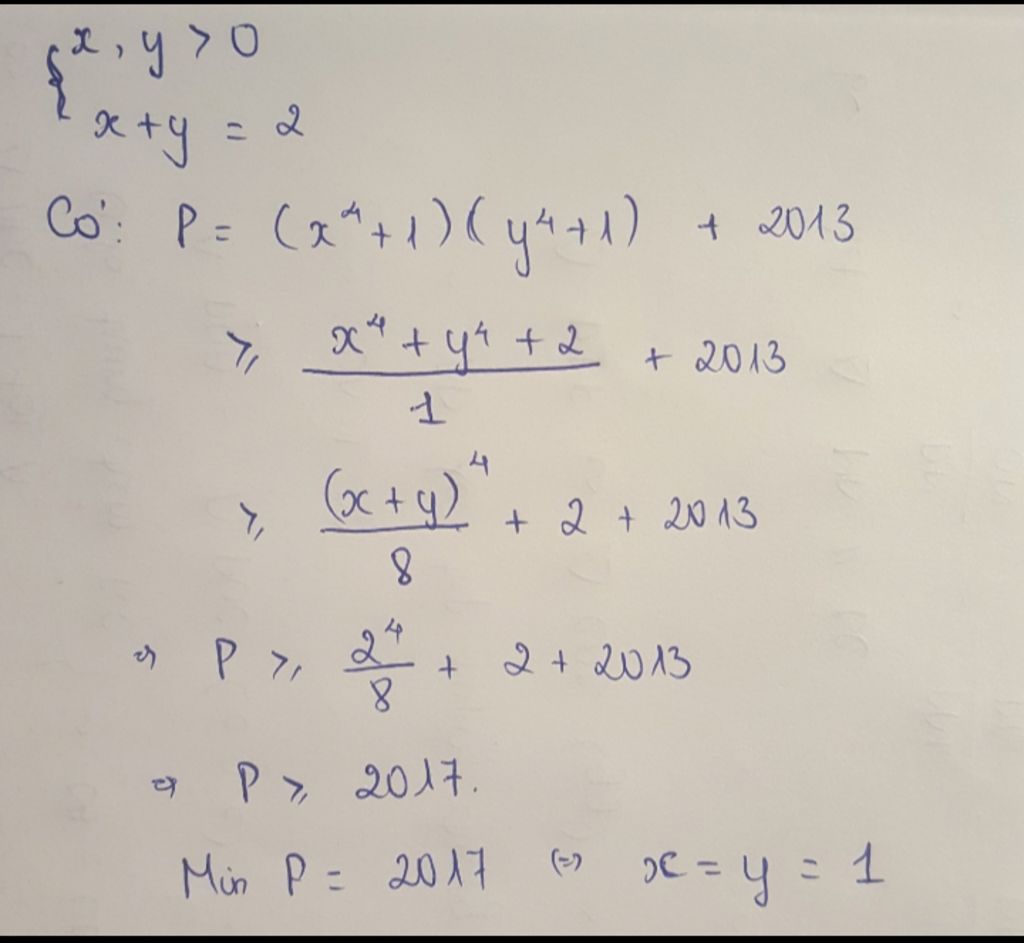 {x, y > 0
x + y = 2
Có: P = (x⁴ + 1)(y⁴ + 1) + 2013
≥ (x⁴ + y⁴ + 2)/1 + 2013
≥ (x + y)⁴/8 + 2 + 2013
⇒ P ≥ 2⁴/8 + 2 + 2013
⇒ P ≥ 2017.
Min P = 2017 (=) x = y = 1